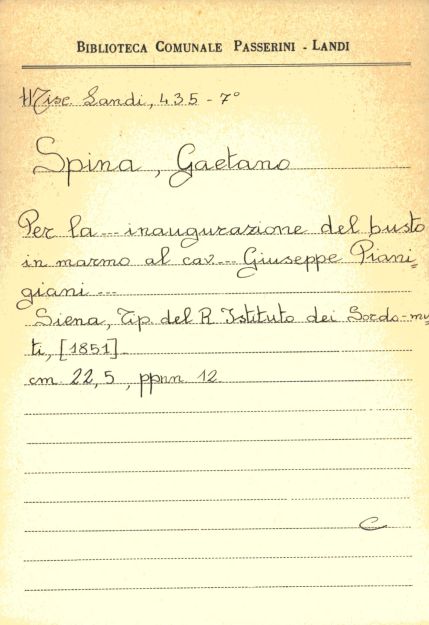 BIBLIOTECA COMUNALE PASSERINI - LANDI
Misc. Landi, 435 - 7°
Spina, Gaetano
Per la ... inaugurazione del busto
in marmo al cav... Giuseppe Piani=
giani ...
Siena, Tip. del R. Istituto dei Sordo-mu
ti, [1851].
cm. 22,5, ppnn 12.
C